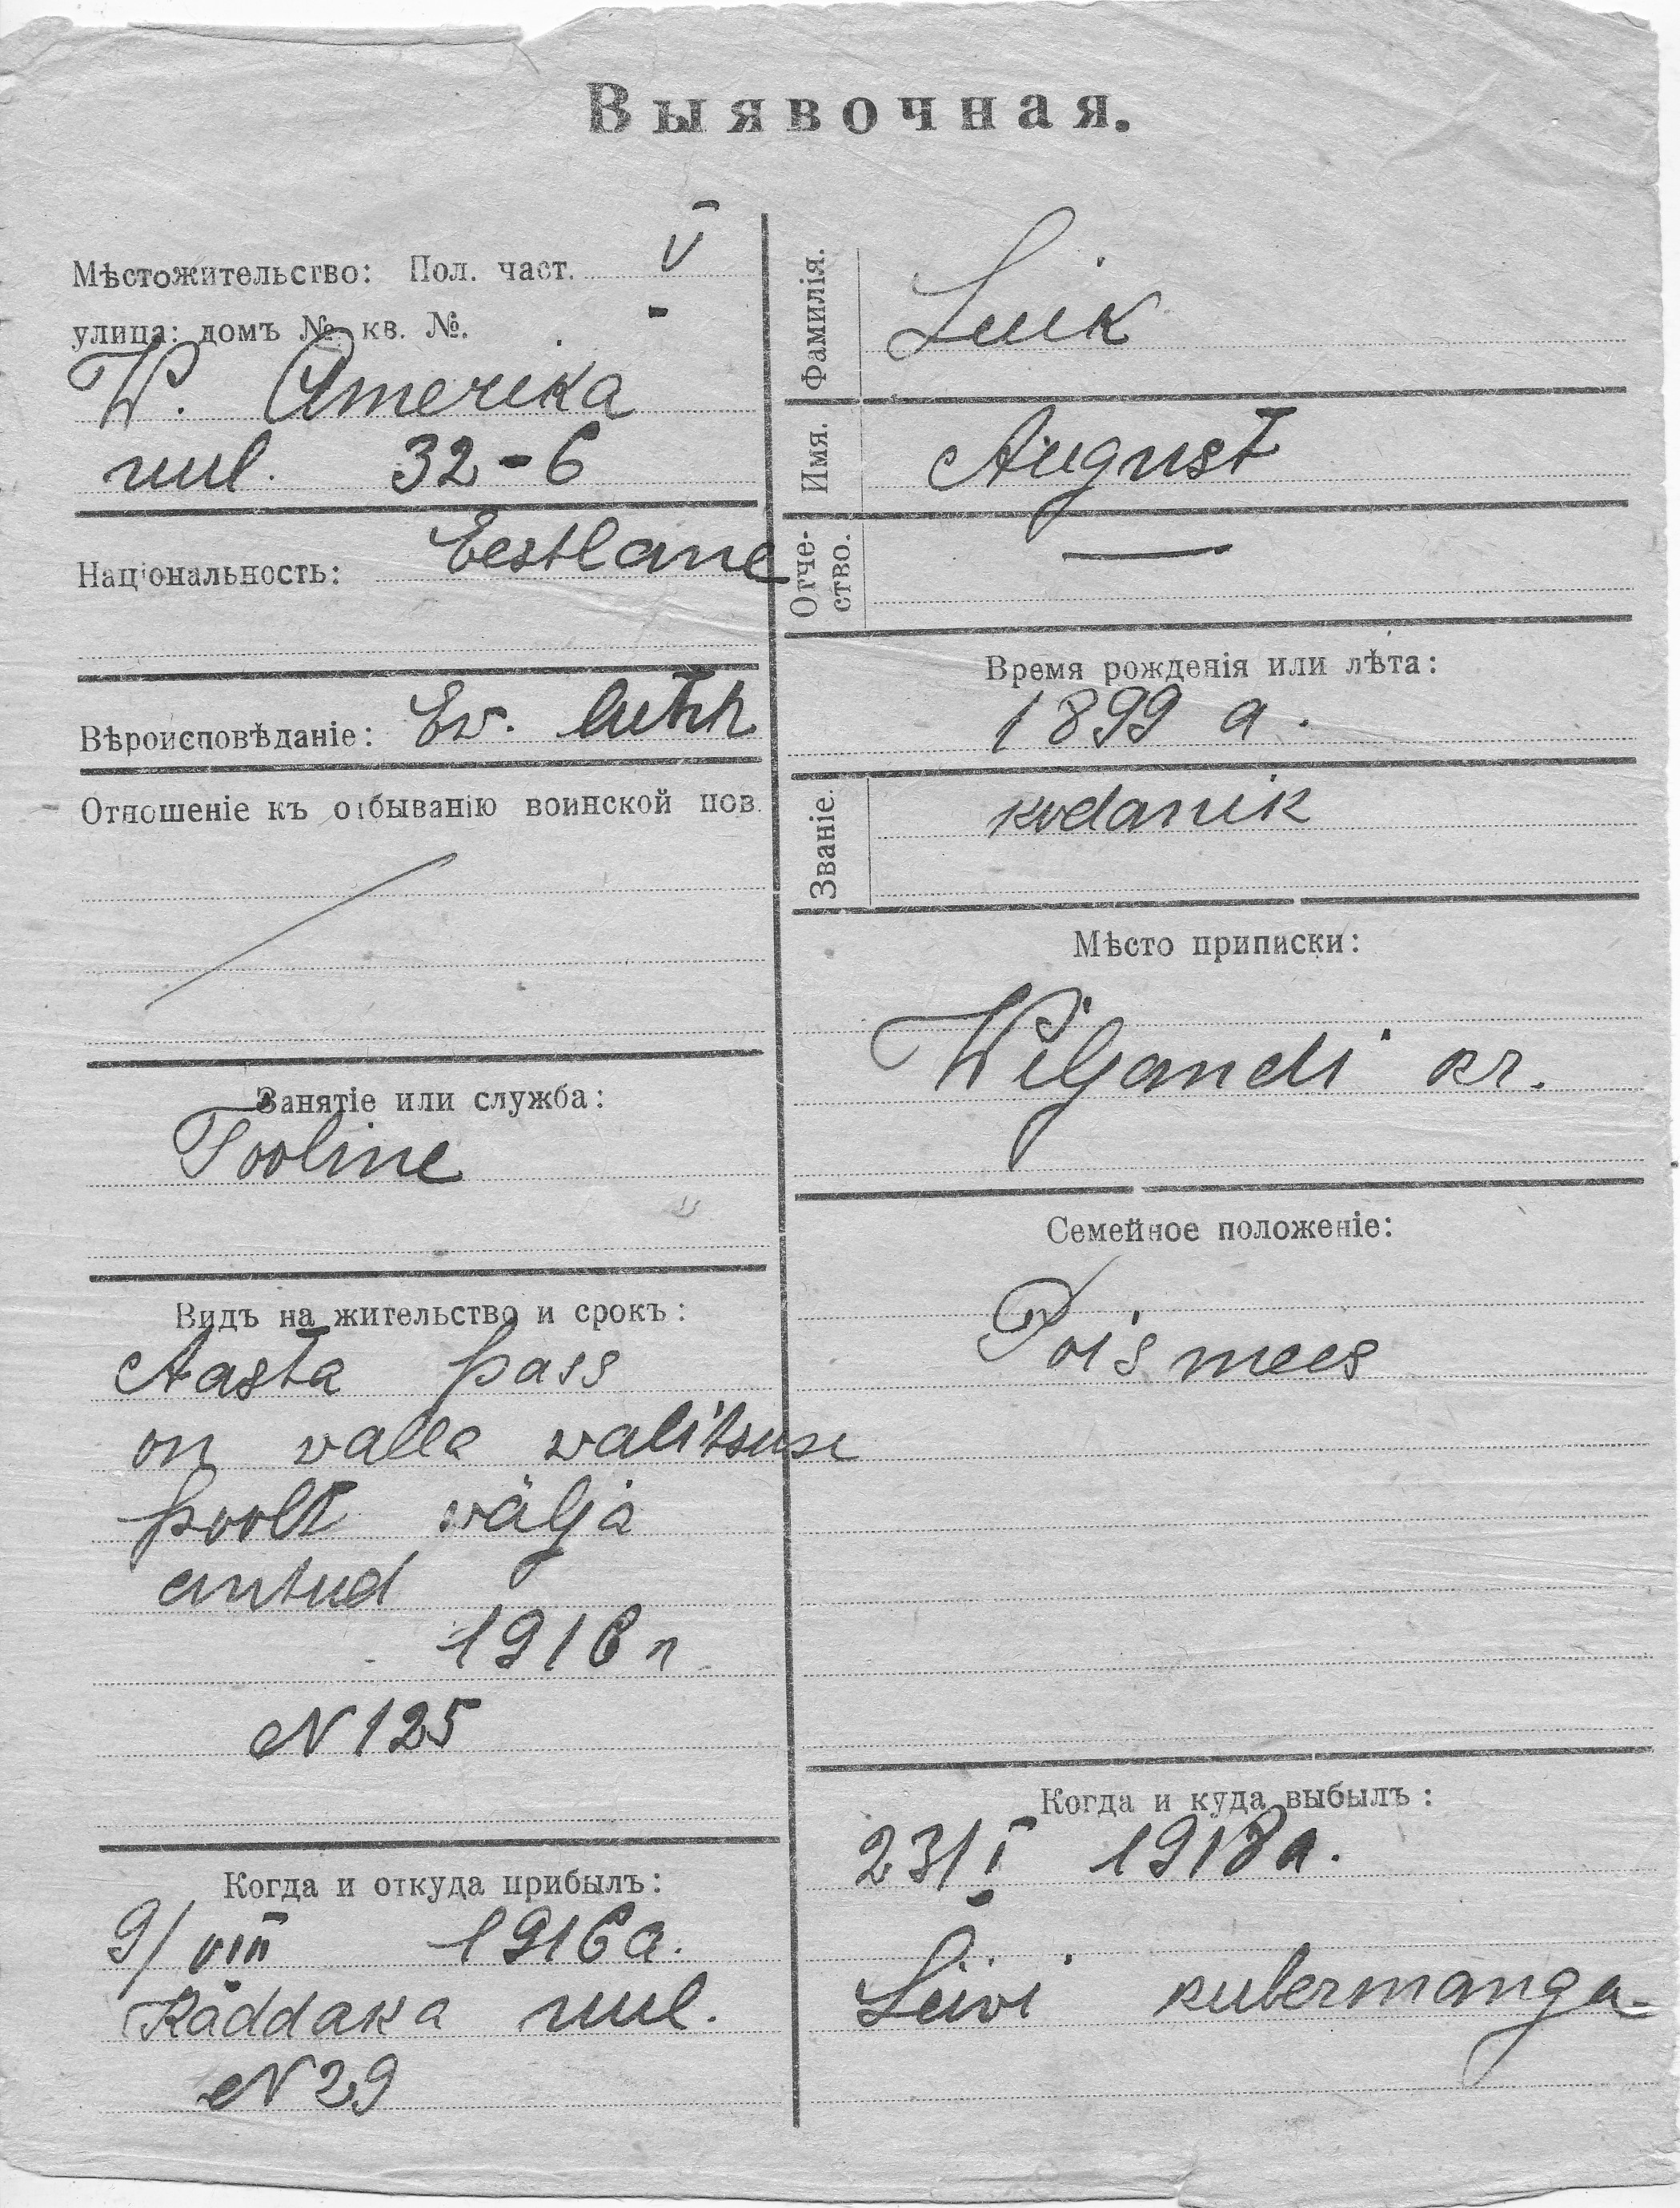 Выявочная.
Мѣстожительство: Пол. част. V
улица: домъ № кв. №.
W. Amerika
uul. 32-6
Національность: Eestlane
Вѣроисповѣданіе: Ew. luth
Отношеніе къ отбыванію воинской пов.
Занятіе или служба:
Tööline
Видъ на жительство и срокъ:
Aasta pass
on valla valitsuse
poolt välja
antud
1916
N 125
Когда и откуда прибылъ:
9/VIII 1916 a.
uul.
N 29
Фамилія. Luik
Имя. August
Отчество. —
Время рожденія или лѣта:
1899 a.
Званіе. kodanik
Мѣсто приписки:
Wiljandi kr.
Семейное положеніе:
Poismees
Когда и куда выбылъ:
23/I 1918 a.
Liivi kubermanga